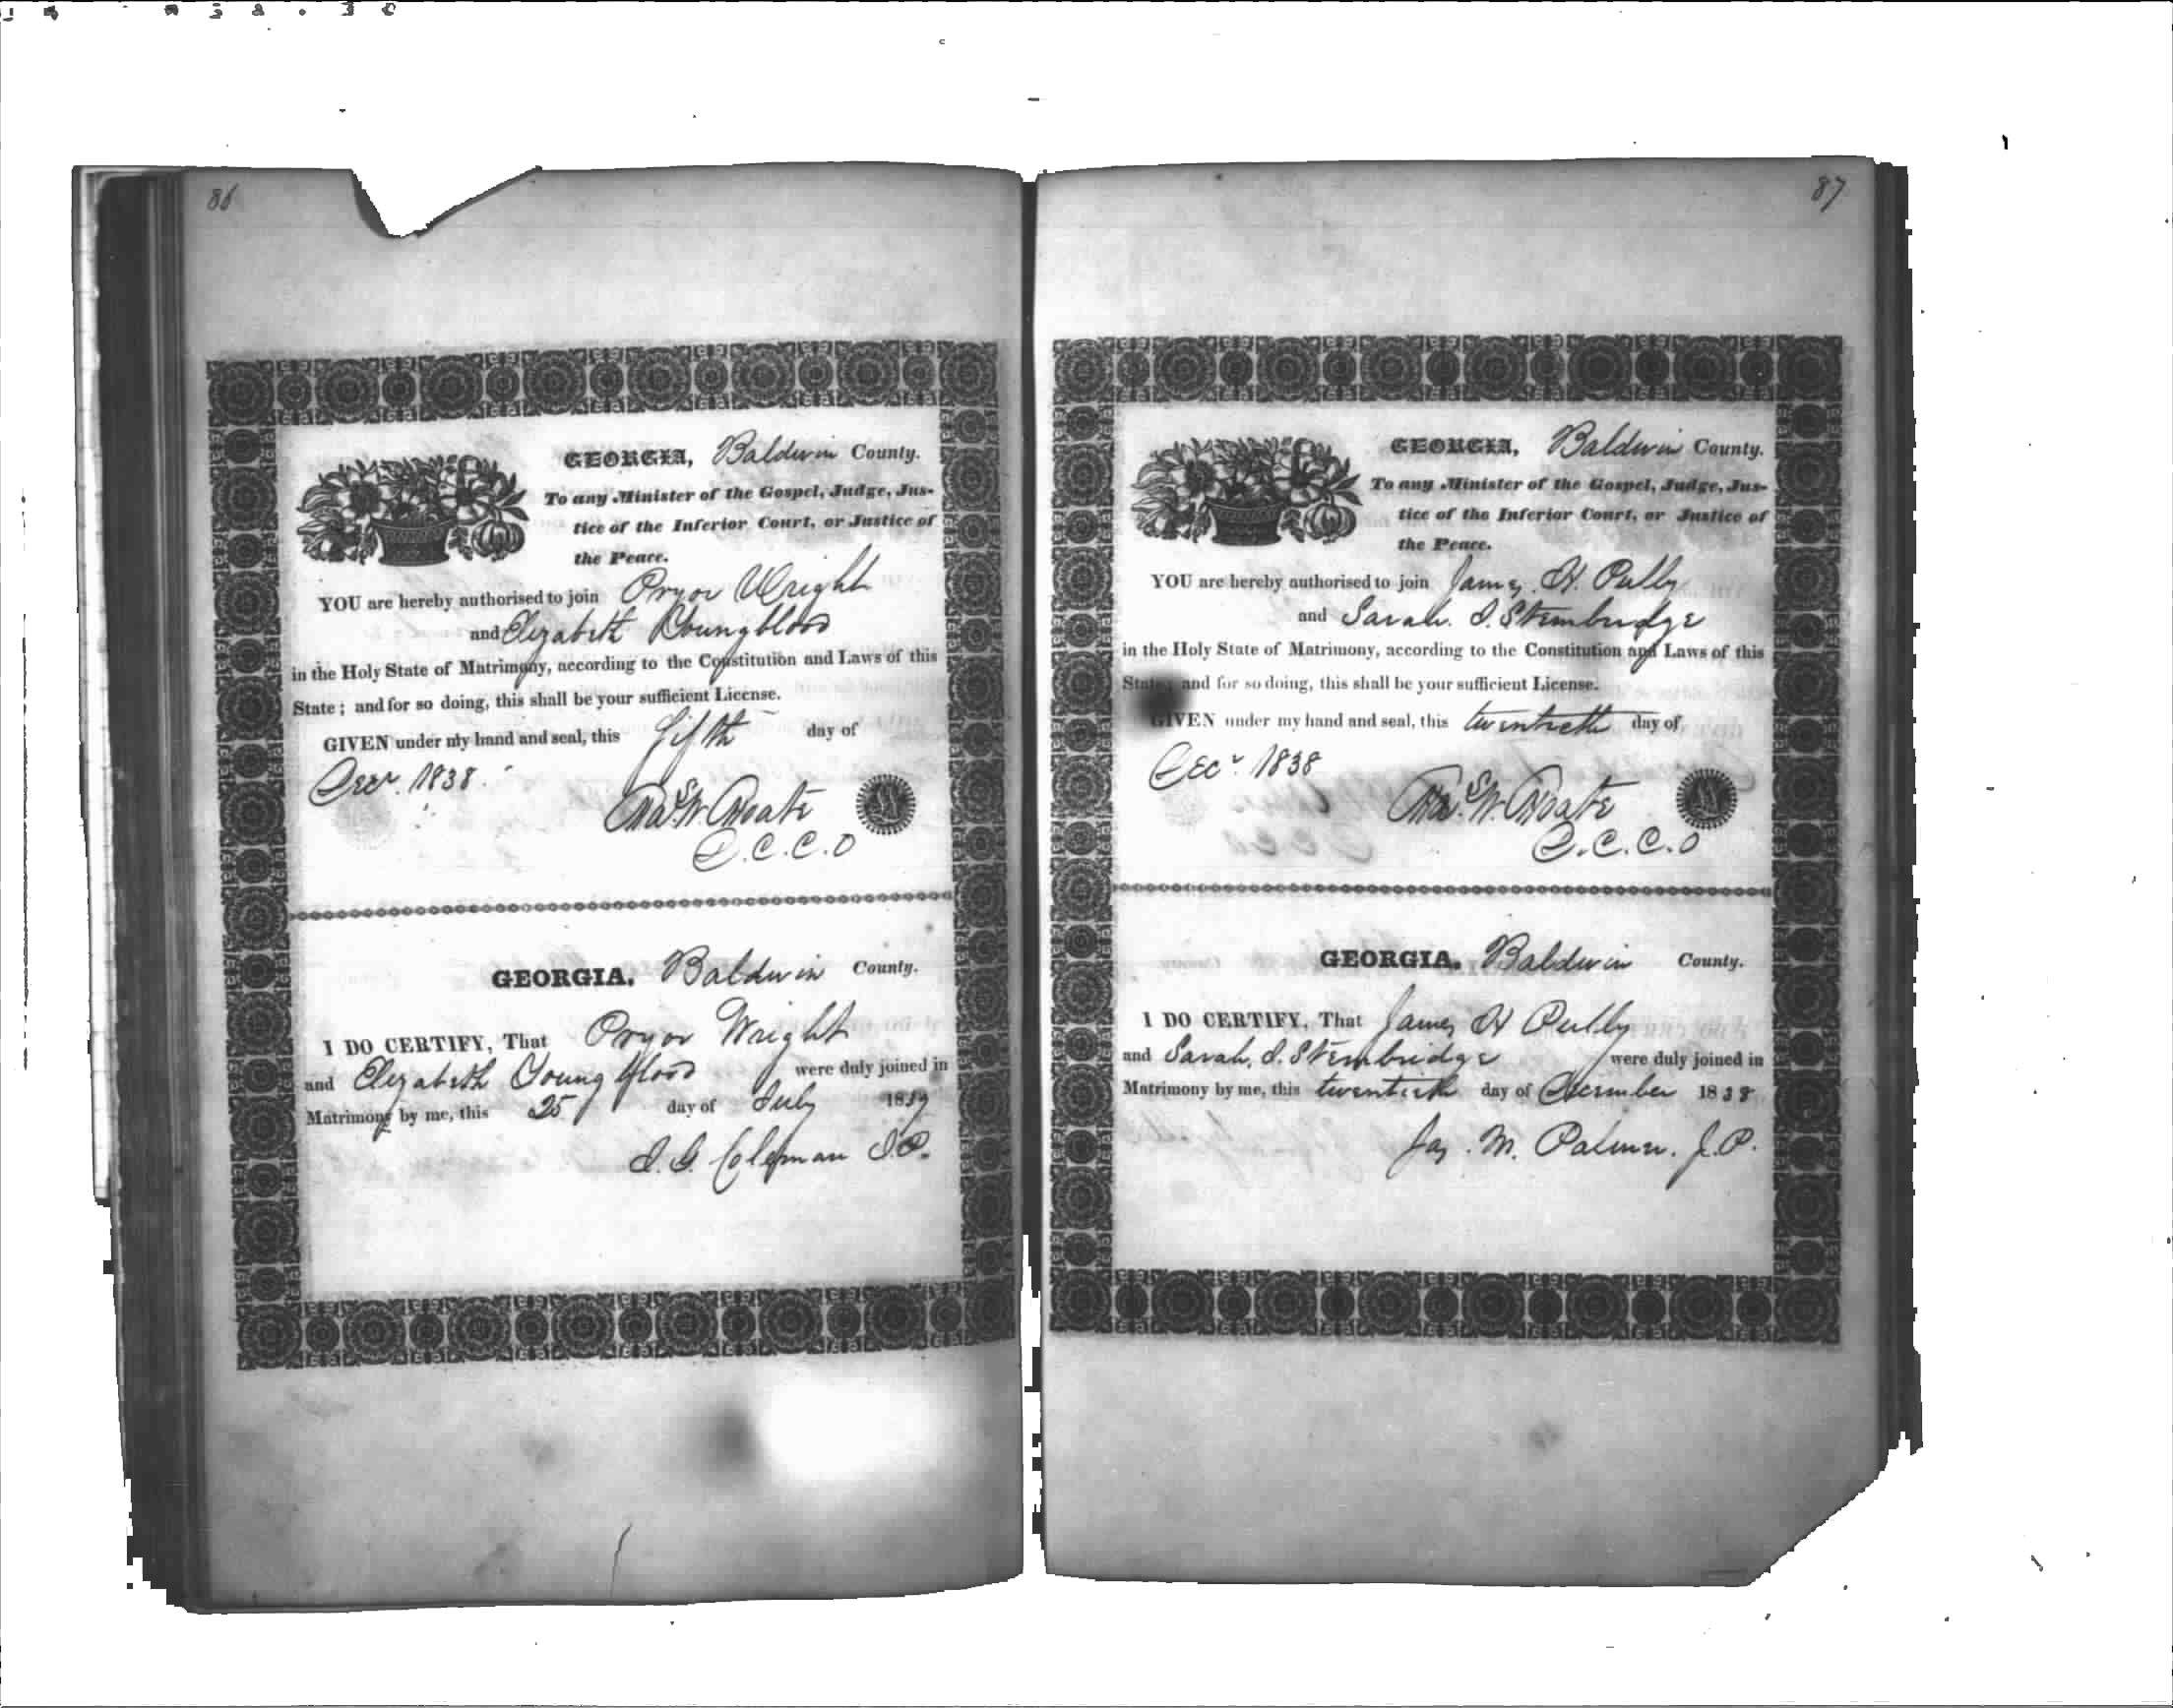 86
GEORGIA, Baldwin County.
To any Minister of the Gospel, Judge, Jus-
tice of the Inferior Court, or Justice of
the Peace.
YOU are hereby authorised to join Pryor Wright
and Elizabeth Youngblood
in the Holy State of Matrimony, according to the Constitution and Laws of this
State; and for so doing, this shall be your sufficient License.
GIVEN under my hand and seal, this fifth day of
Decr. 1838.
Thas. W. Choate
C.C.O
GEORGIA, Baldwin County.
I DO CERTIFY, That Pryor Wright
and Elizabeth Young blood were duly joined in
Matrimony by me, this 25 day of July 1839
J. G. Coleman J.P.
87
GEORGIA, Baldwin County.
To any Minister of the Gospel, Judge, Jus-
tice of the Inferior Court, or Justice of
the Peace.
YOU are hereby authorised to join James H. Pulby
and Sarah. J. Stembridge
in the Holy State of Matrimony, according to the Constitution and Laws of this
State; and for so doing, this shall be your sufficient License.
GIVEN under my hand and seal, this twentieth day of
Decr. 1838
Thas. W. Choate
C.C.O
GEORGIA, Baldwin County.
I DO CERTIFY, That James H Pulby
and Sarah. J. Stembridge were duly joined in
Matrimony by me, this twentieth day of December 1838
Jas. M. Palmer. J.P.